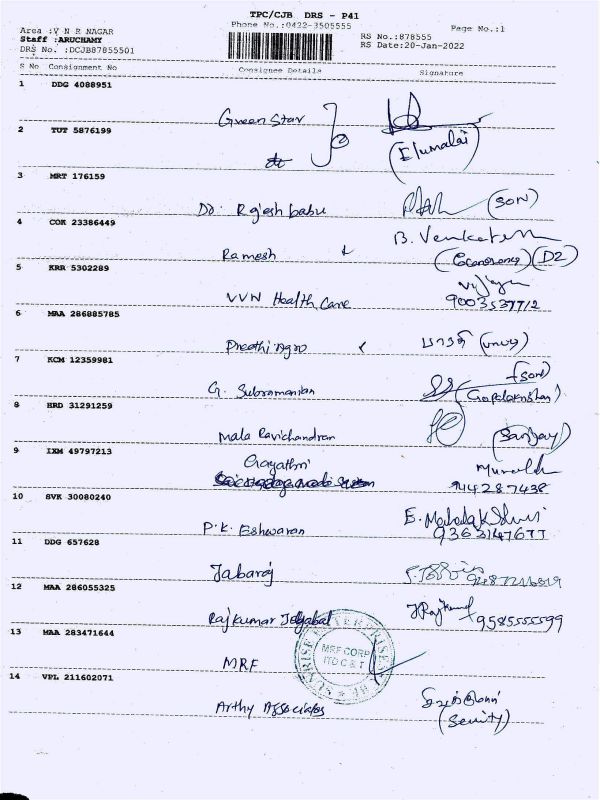 TPC/CJB DRS - P41
Area :V N R NAGAR Phone No.:0422-3505555 Page No.:1
Staff :ARUCHAMY RS No.:878555
DRS No. :DCJB87855501 RS Date:20-Jan-2022
S No Consignment No Consignee Details Signature
1 DDG 4088951
Green Star
2 TUT 5876199
(Elumalai)
3 MRT 176159
Dr. Rajesh babu (SON)
4 COK 23386449
B. Venkatesh
Ramesh (D2)
5 KRR 5302289
VVN Health Care 9003537712
6 MAA 286885785
Preethi Agro
7 KCM 12359981
(SON)
G. Subramanian (Gopalakrishnan)
8 HRD 31291259
Mala Ravichandran (Sanjay)
9 IXM 49797213
Gayathri
944287438
10 SVK 30080240
P.K. Eshwaran 9363147677
11 DDG 657628
Jabaraj
12 MAA 286055325
Rajkumar 9585555599
13 MAA 283471644
MRF
SUNRISE ENTERPRISES
MRF CORP
ITD C & T
14 VPL 211602071
Arthy Associates